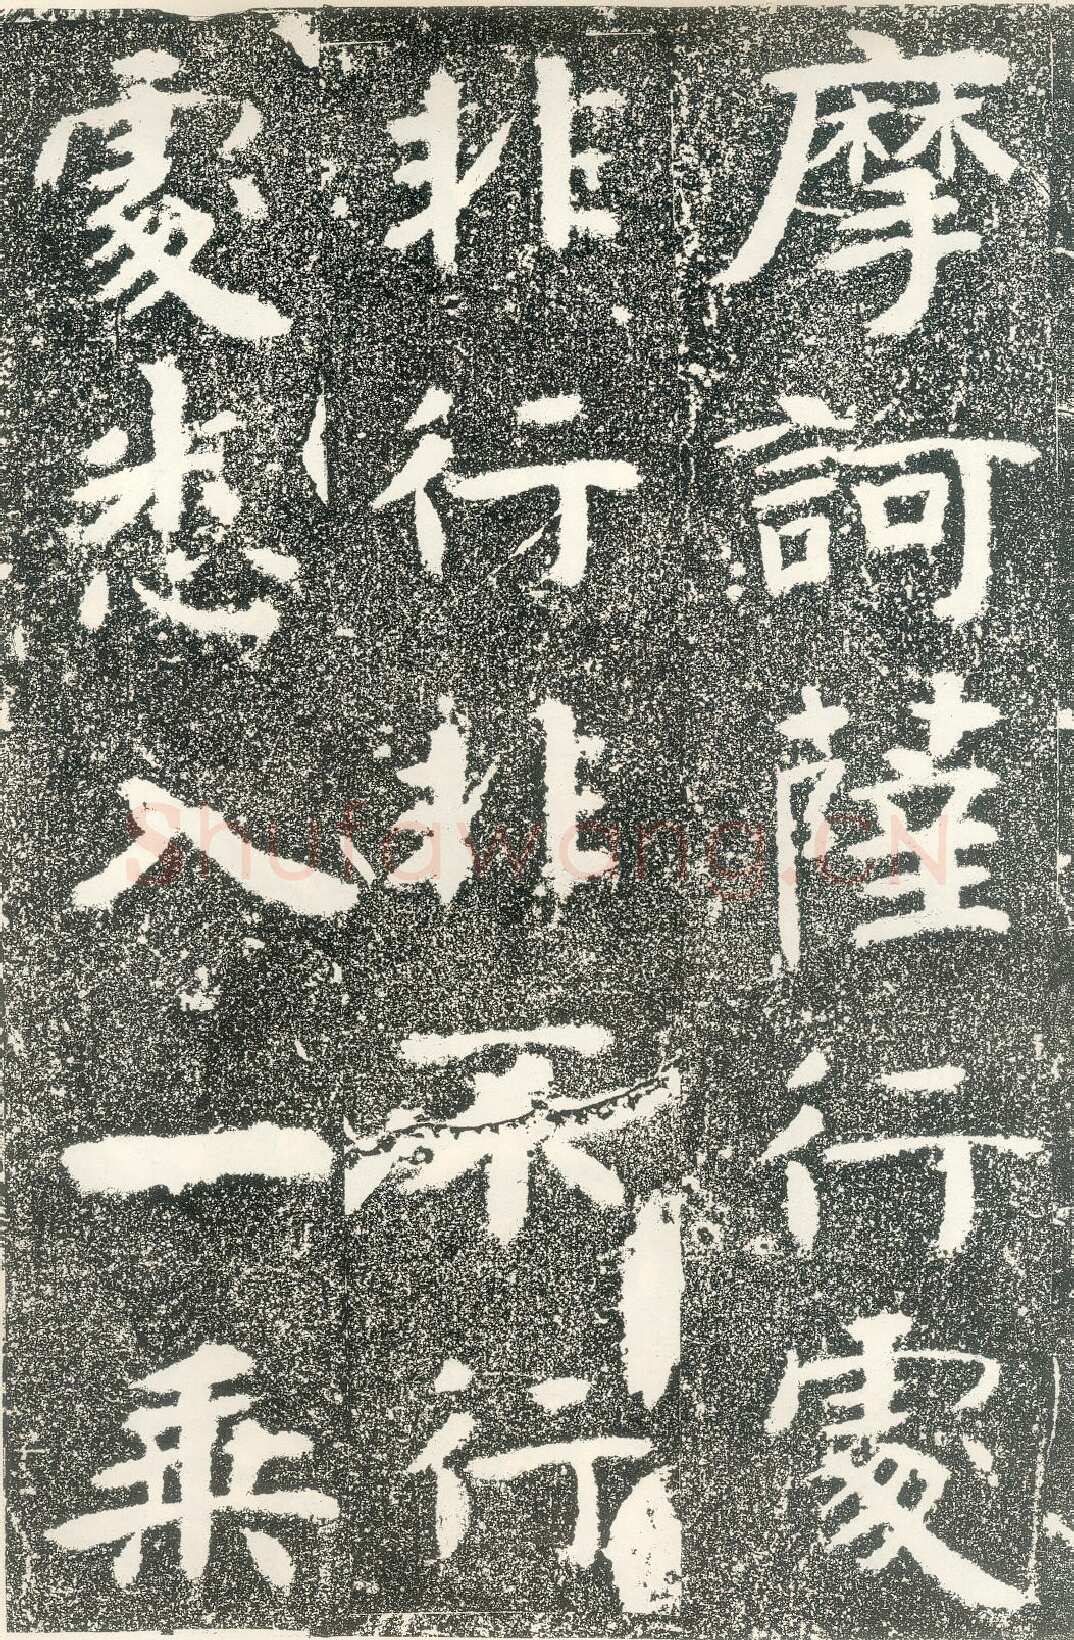 摩訶薩行處
非行非不行
處悉入一乘
Shufawang.CN